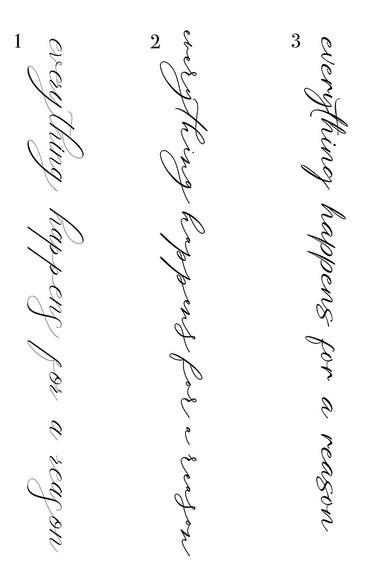 1
everything happens for a reason
2
everything happens for a reason
3
everything happens for a reason